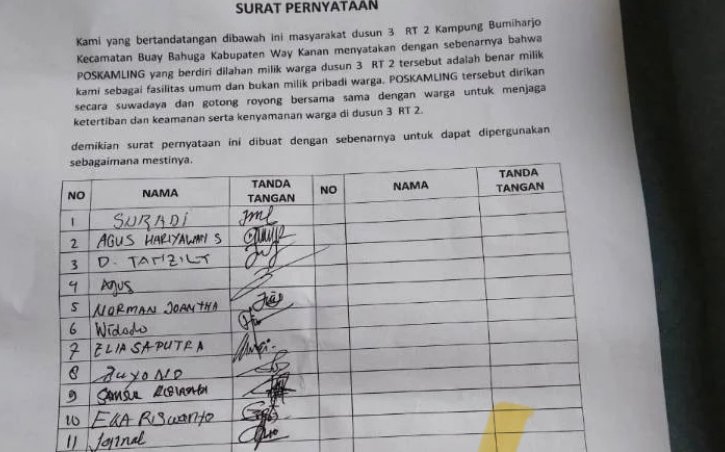 SURAT PERNYATAAN
Kami yang bertandatangan dibawah ini masyarakat dusun 3 RT 2 Kampung Bumiharjo
Kecamatan Buay Bahuga Kabupaten Way Kanan menyatakan dengan sebenarnya bahwa
POSKAMLING yang berdiri dilahan milik warga dusun 3 RT 2 tersebut adalah benar milik
kami sebagai fasilitas umum dan bukan milik pribadi warga. POSKAMLING tersebut dirikan
secara suwadaya dan gotong royong bersama sama dengan warga untuk menjaga
ketertiban dan keamanan serta kenyamanan warga di dusun 3 RT 2.
demikian surat pernyataan ini dibuat dengan sebenarnya untuk dapat dipergunakan
sebagaimana mestinya.
NO NAMA TANDA TANGAN NO NAMA TANDA TANGAN
1 SURADI
2 AGUS HARIYAWAN S
3 D. TAMZILY
4 Agus
5 NORMAN
6 Widodo
7 ELIA SAPUTRA
8
9
10 EKA RISWANTO
11